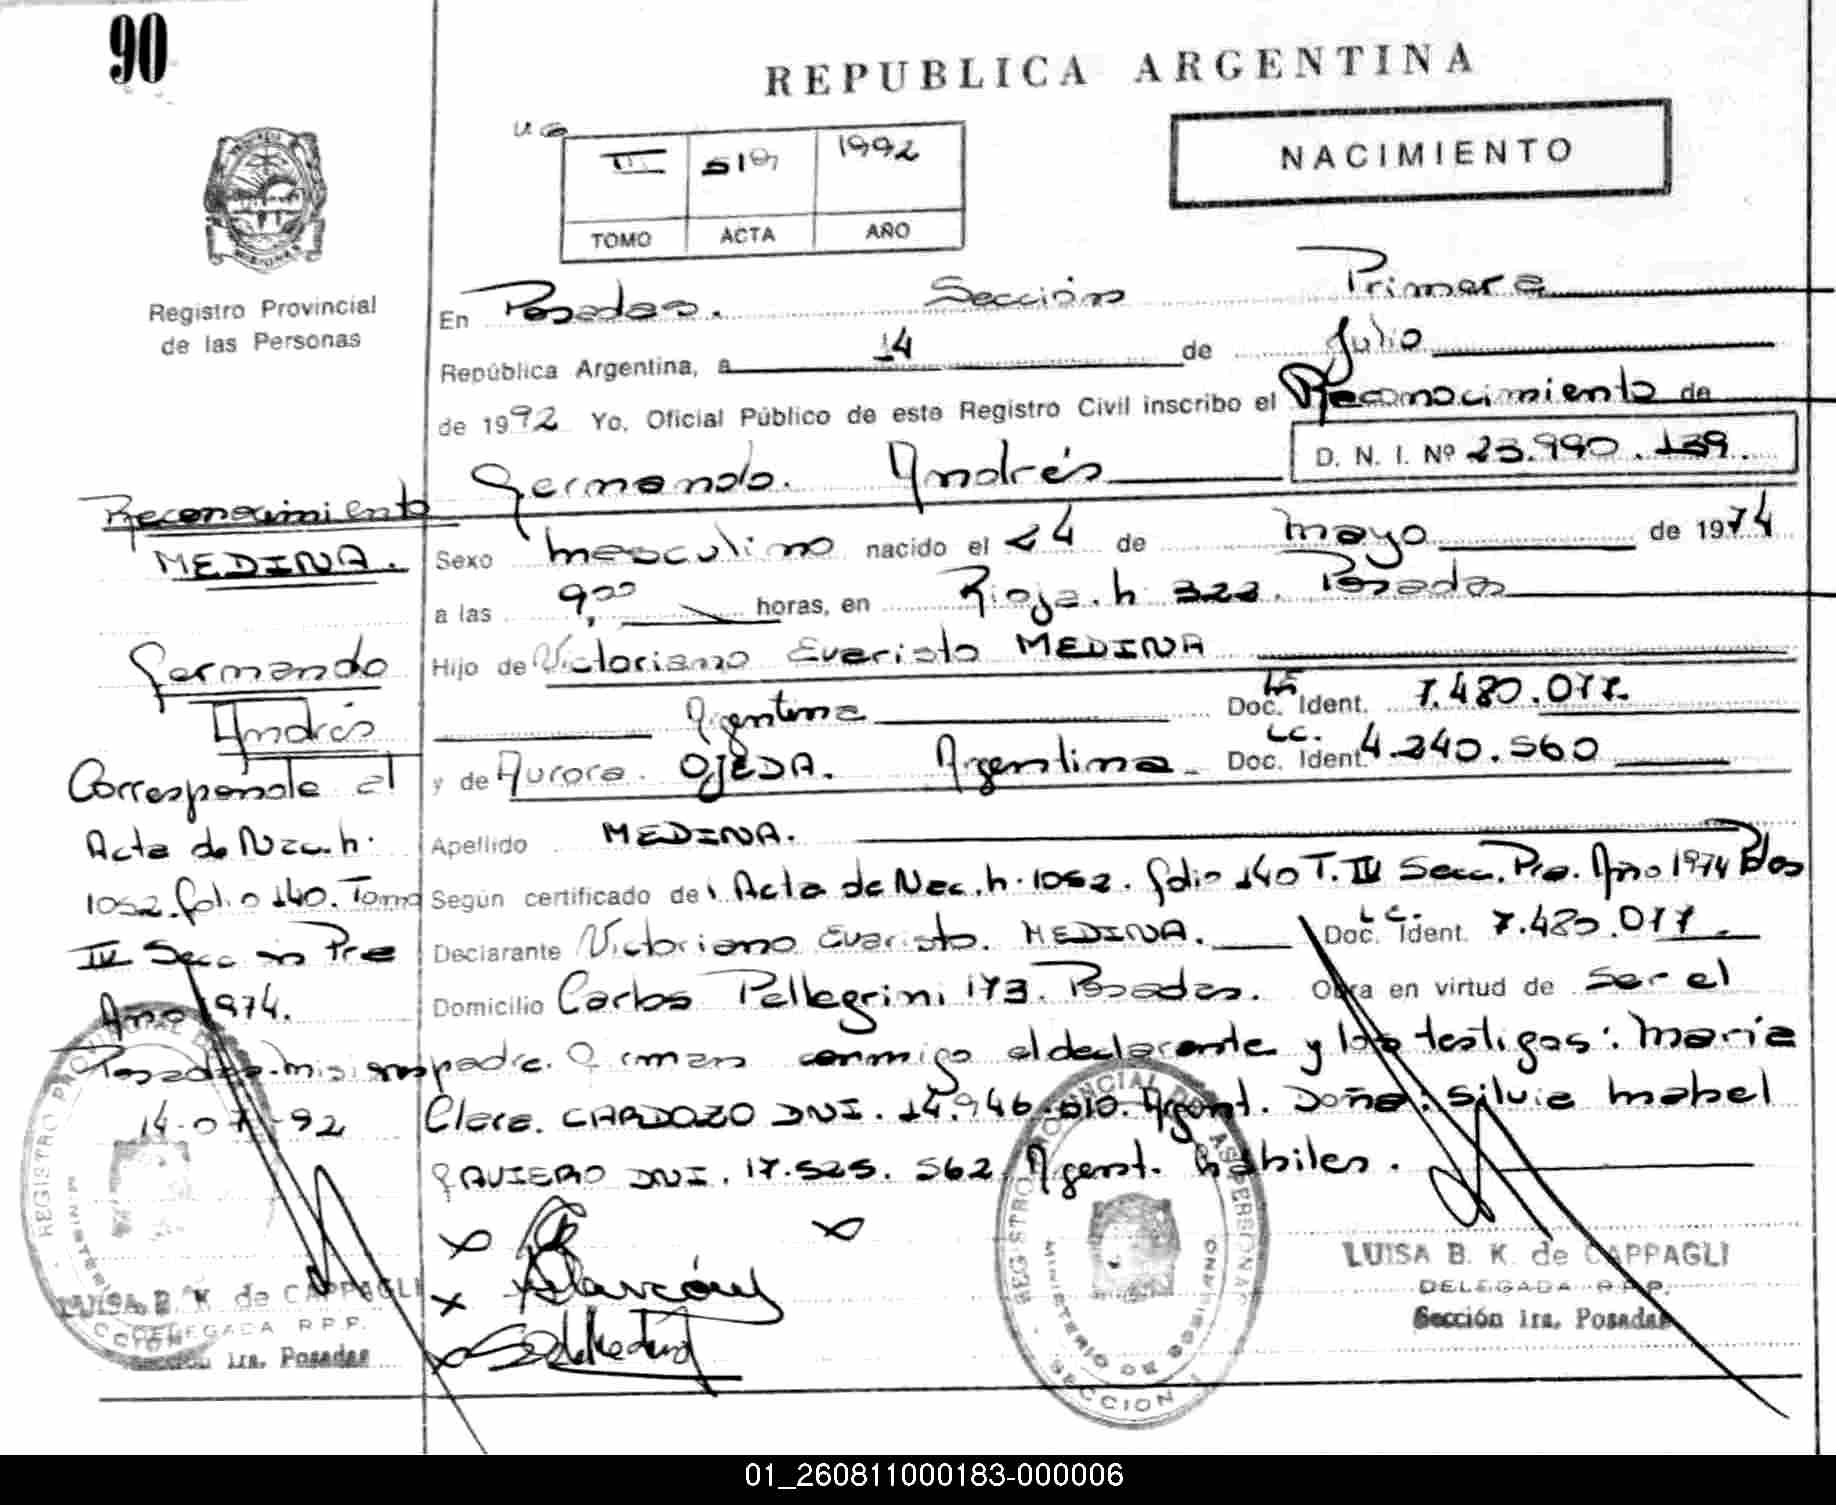 90
REPUBLICA ARGENTINA
NACIMIENTO
III 519 1992
TOMO ACTA AÑO
Registro Provincial
de las Personas
En Posadas. Sección Primera
República Argentina, a 14 de Julio
de 1992 Yo, Oficial Público de este Registro Civil inscribo el Reconocimiento de
Germando. Andrés D. N. I. Nº 23.990.139.
Reconocimiento
MEDINA.
Germando
Andrés
Corresponde al
Acta de Nac. h.
1052. folio 140. Tomo
IV Sección Pra
Año 1974.
Posadas. Misiones
14-07-92
Sexo masculino nacido el 24 de mayo de 1974
a las 9,00 horas, en Rioja. h 323. Posadas
Hijo de Victoriano Evaristo MEDINA
Argentina Doc. Ident. 7.480.077.
y de Aurora. OJEDA. Argentina L.C. Doc. Ident. 4.240.560
Apellido MEDINA.
Según certificado de Acta de Nac. h. 1052. folio 140 T. IV Secc. Pra. Año 1974 Pdas
Declarante Victoriano Evaristo. MEDINA. Doc. Ident. 7.480.077.
Domicilio Carlos Pellegrini 173. Posadas. Obra en virtud de ser el
padre. Firman conmigo el declarante y los testigos: María
Clara. CARDOZO DNI. 14.946.010. Argent. Doña: Silvia Mabel
GAVIERO DNI. 17.525.562. Argent. hábiles.
REGISTRO PROVINCIAL DE LAS PERSONAS
MINISTERIO DE GOBIERNO
SECCION 1
LUISA B. K. de CAPPAGLI
DELEGADA R.P.P.
Sección 1ra. Posadas
LUISA B. K. de CAPPAGLI
DELEGADA R.P.P.
Sección 1ra. Posadas
01_260811000183-000006